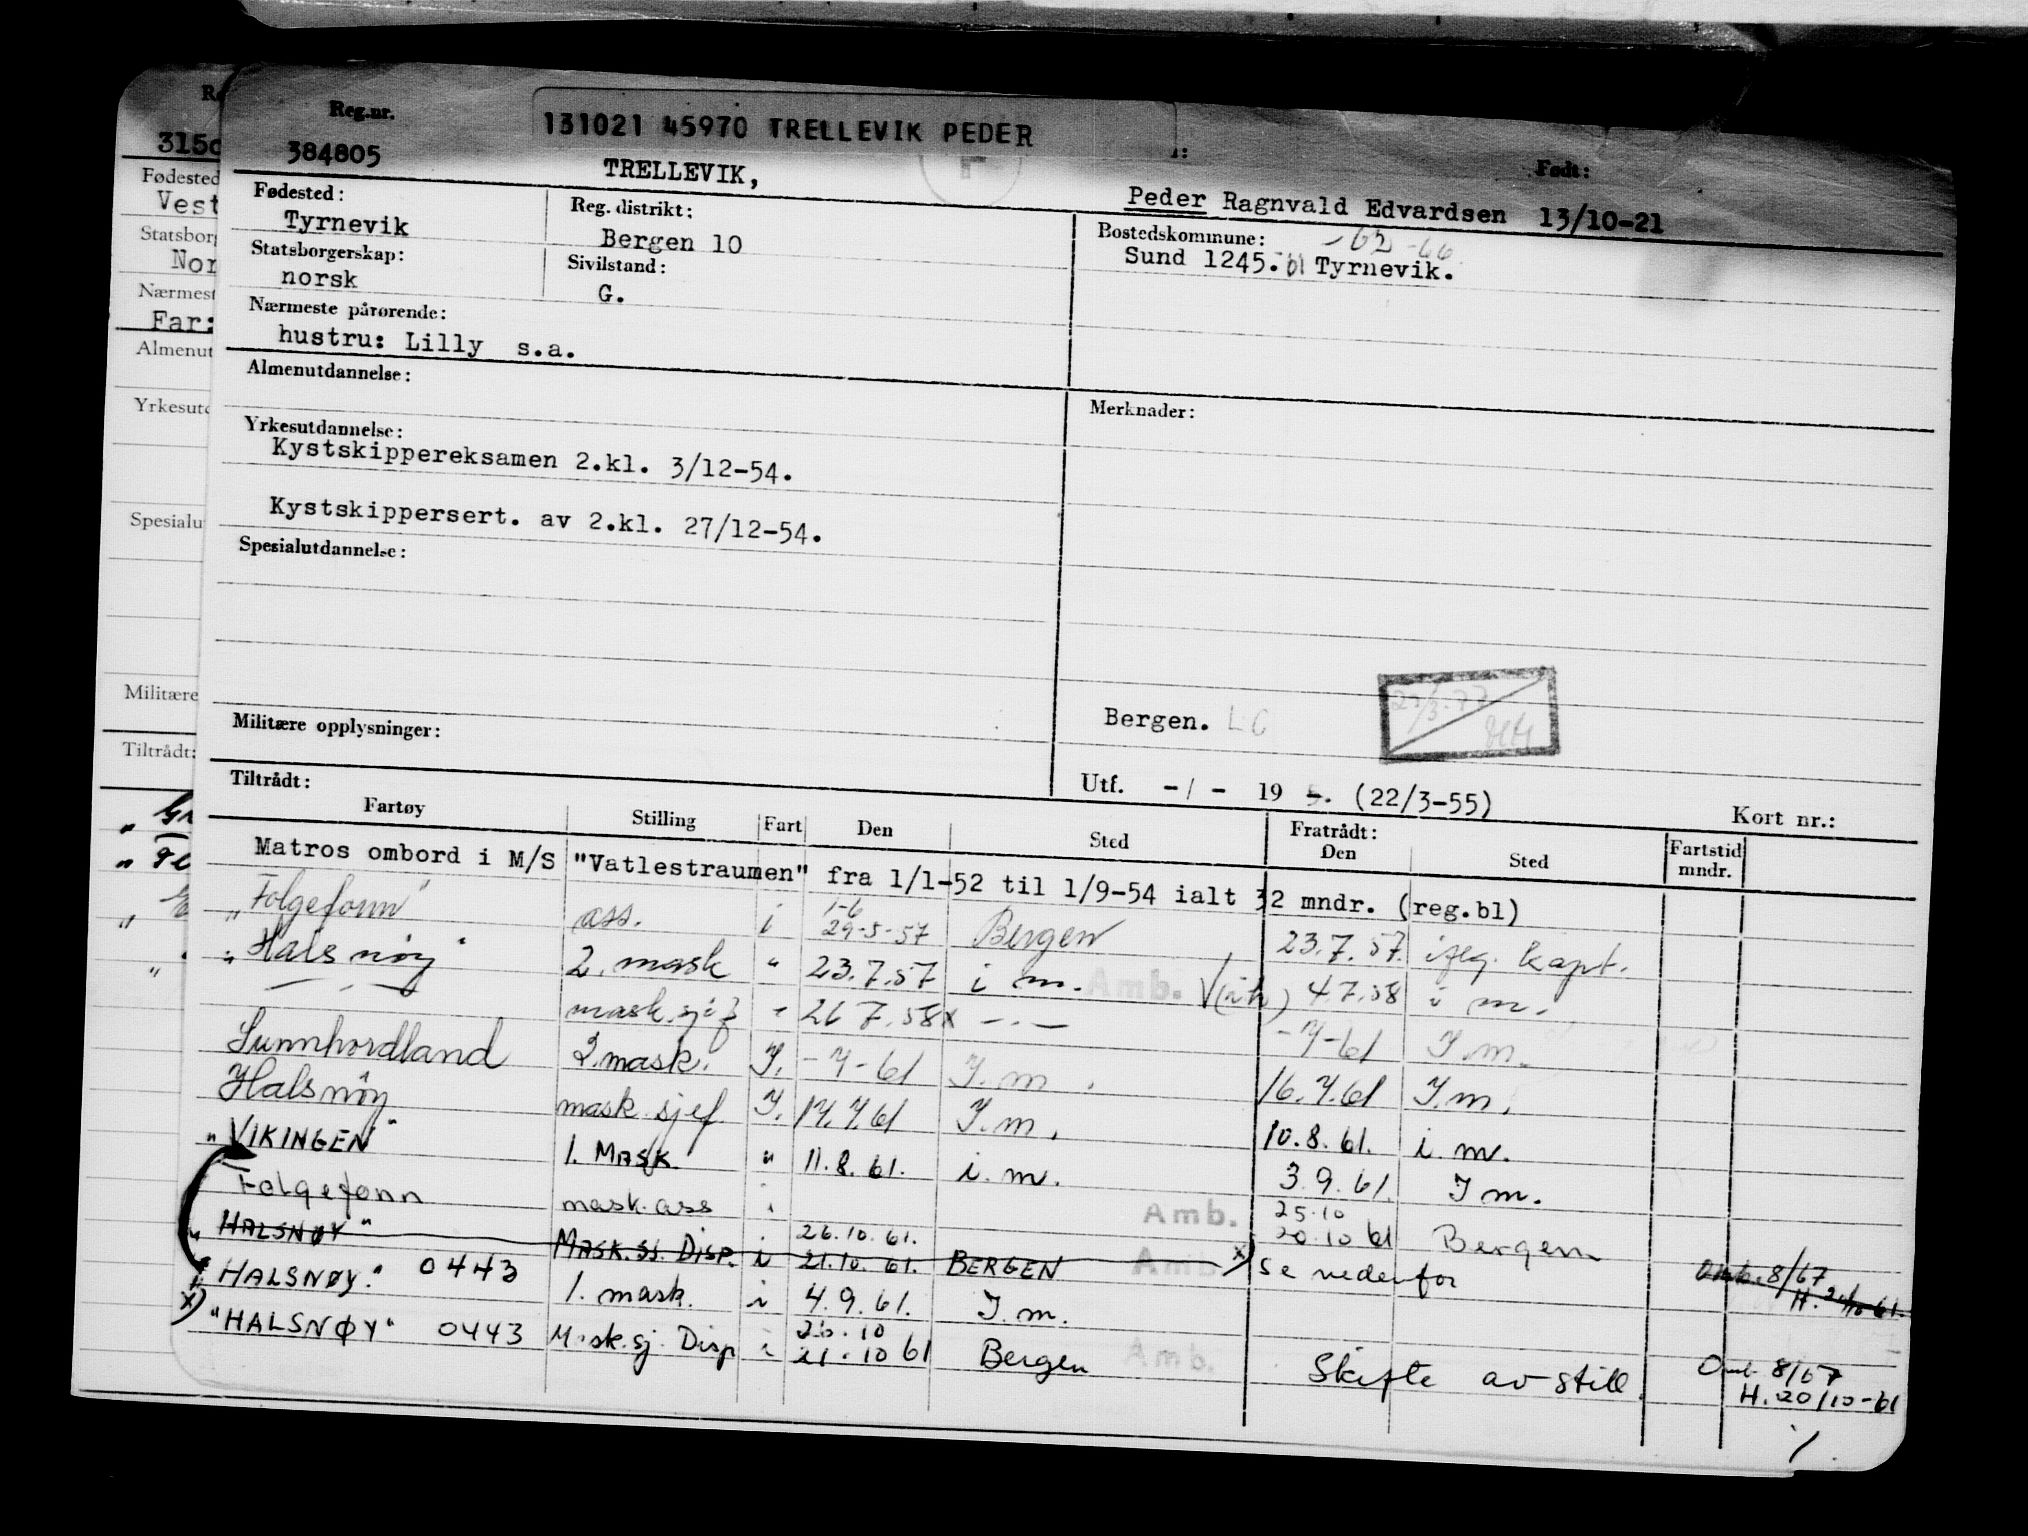 Reg.nr. 131021 45970 TRELLEVIK PEDER Født:
384805 TRELLEVIK, Peder Ragnvald Edvardsen 13/10-21
Fødested: Reg. distrikt: Bostedskommune: -62-66
Tyrnevik Bergen 10 Sund 1245. 61 Tyrnevik.
Statsborgerskap: Sivilstand:
norsk G.
Nærmeste pårørende:
hustru: Lilly s.a.
Almenutdannelse: Merknader:
Yrkesutdannelse:
Kystskippereksamen 2.kl. 3/12-54.
Kystskippersert. av 2.kl. 27/12-54.
Spesialutdannelse:
Bergen. LG
Militære opplysninger:
Utf. -/- 19 (22/3-55) Kort nr.:
Tiltrådt: Fratrådt:
Fartøy Stilling Fart Den Sted Den Sted Fartstid mndr.
Matros ombord i M/S "Vatlestraumen" fra 1/1-52 til 1/9-54 ialt 32 mndr. (reg.bl)
1-6
"Folgefonn" ass. i 29-5-57 Bergen 23.7.57. iflg. kapt.
"Halsnøy" 2. mask " 23.7.57 i m. Amb. 4.7.58 i m.
— . — mask.sjef " 26 7.58x — . — -7-61 I.m.
Sunnhordland 2.mask. I. -7-61 I.m. 16.7.61 I.m.
Halsnøy mask.sjef I. 17.7.61 I.m. 10.8.61. i.m.
"VIKINGEN" 1. MASK. " 11.8.61. i.m. 3.9.61. I m.
25.10
Folgefonn mask.ass i Amb. 20.10 61 Bergen
26.10.61.
"HALSNØY" MASK.SJ. DISP. i 21.10.61. BERGEN Amb. x) Se nedenfor Omb. 8/67
"HALSNØY." 0443 1. mask. i 4.9.61. I.m.
26.10
x) "HALSNØY" 0443 Mask.sj. Disp i 21.10 61 Bergen Amb. Skifte av still. Omb. 8/67
H. 20/10-61
315
Fødested
Vest
Statsborg
Nor
Nærmest
Far:
Almenut
Yrkesutd
Spesialu
Militære
Tiltrådt: